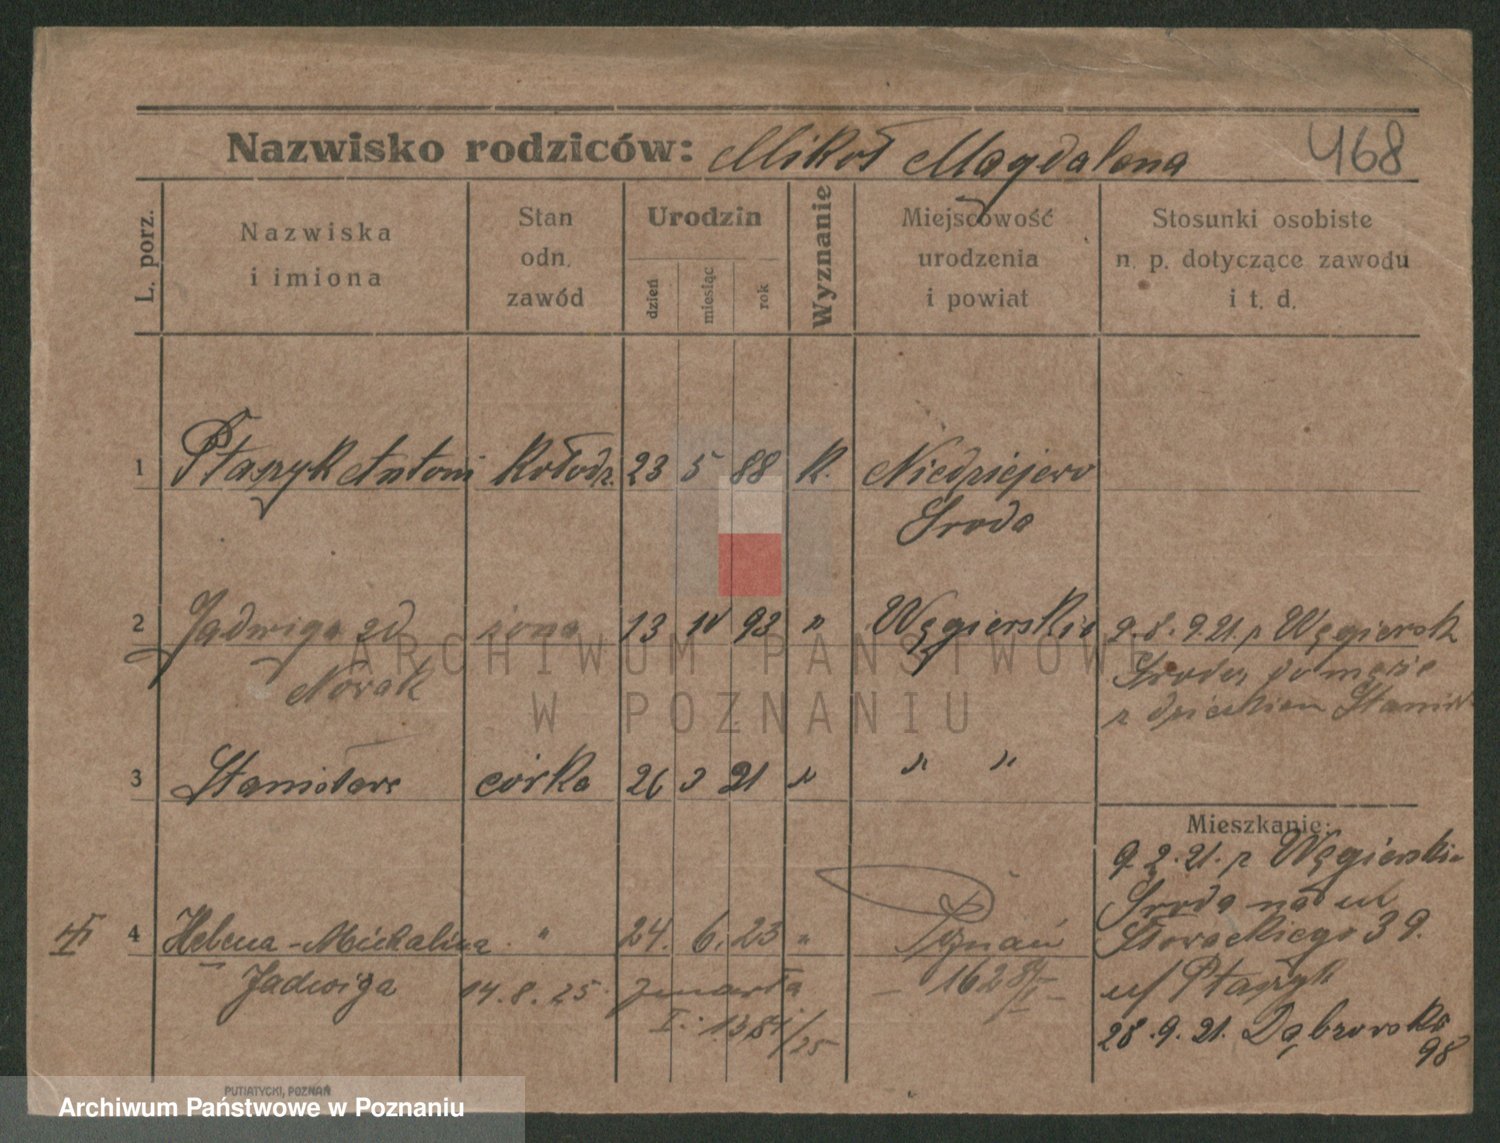 Nazwisko rodziców: Mikoł Magdalena 468
L. porz.
Nazwiska i imiona
Stan odn. zawód
Urodzin
dzień
miesiąc
rok
Wyznanie
Miejscowość urodzenia i powiat
Stosunki osobiste n. p. dotyczące zawodu i t. d.
1 Ptaszyk Antoni kołodz. 23 5 88 k. Niedziejewo
Sroda
2 Jadwiga zd żona 13 10 93 " Węgierskie 9.8.921. z Węgiersk
Nowak Sroda, do męża
z dzieckiem Stanisł
3 Stanisława córka 26 3 21 " " "
Mieszkanie:
9.2.21. z Węgierskie
Sroda na ul
4 Helena-Michalina " 24. 6. 23 " Poznań Słowackiego 39.
Jadwiga 14.8.25 zmarła 1628/ u/ Ptaszyk
I. 1384/25 28.9.21. Dąbrowska
98
PUTIATYCKI, POZNAŃ
ARCHIWUM PAŃSTWOWE
W POZNANIU
Archiwum Państwowe w Poznaniu